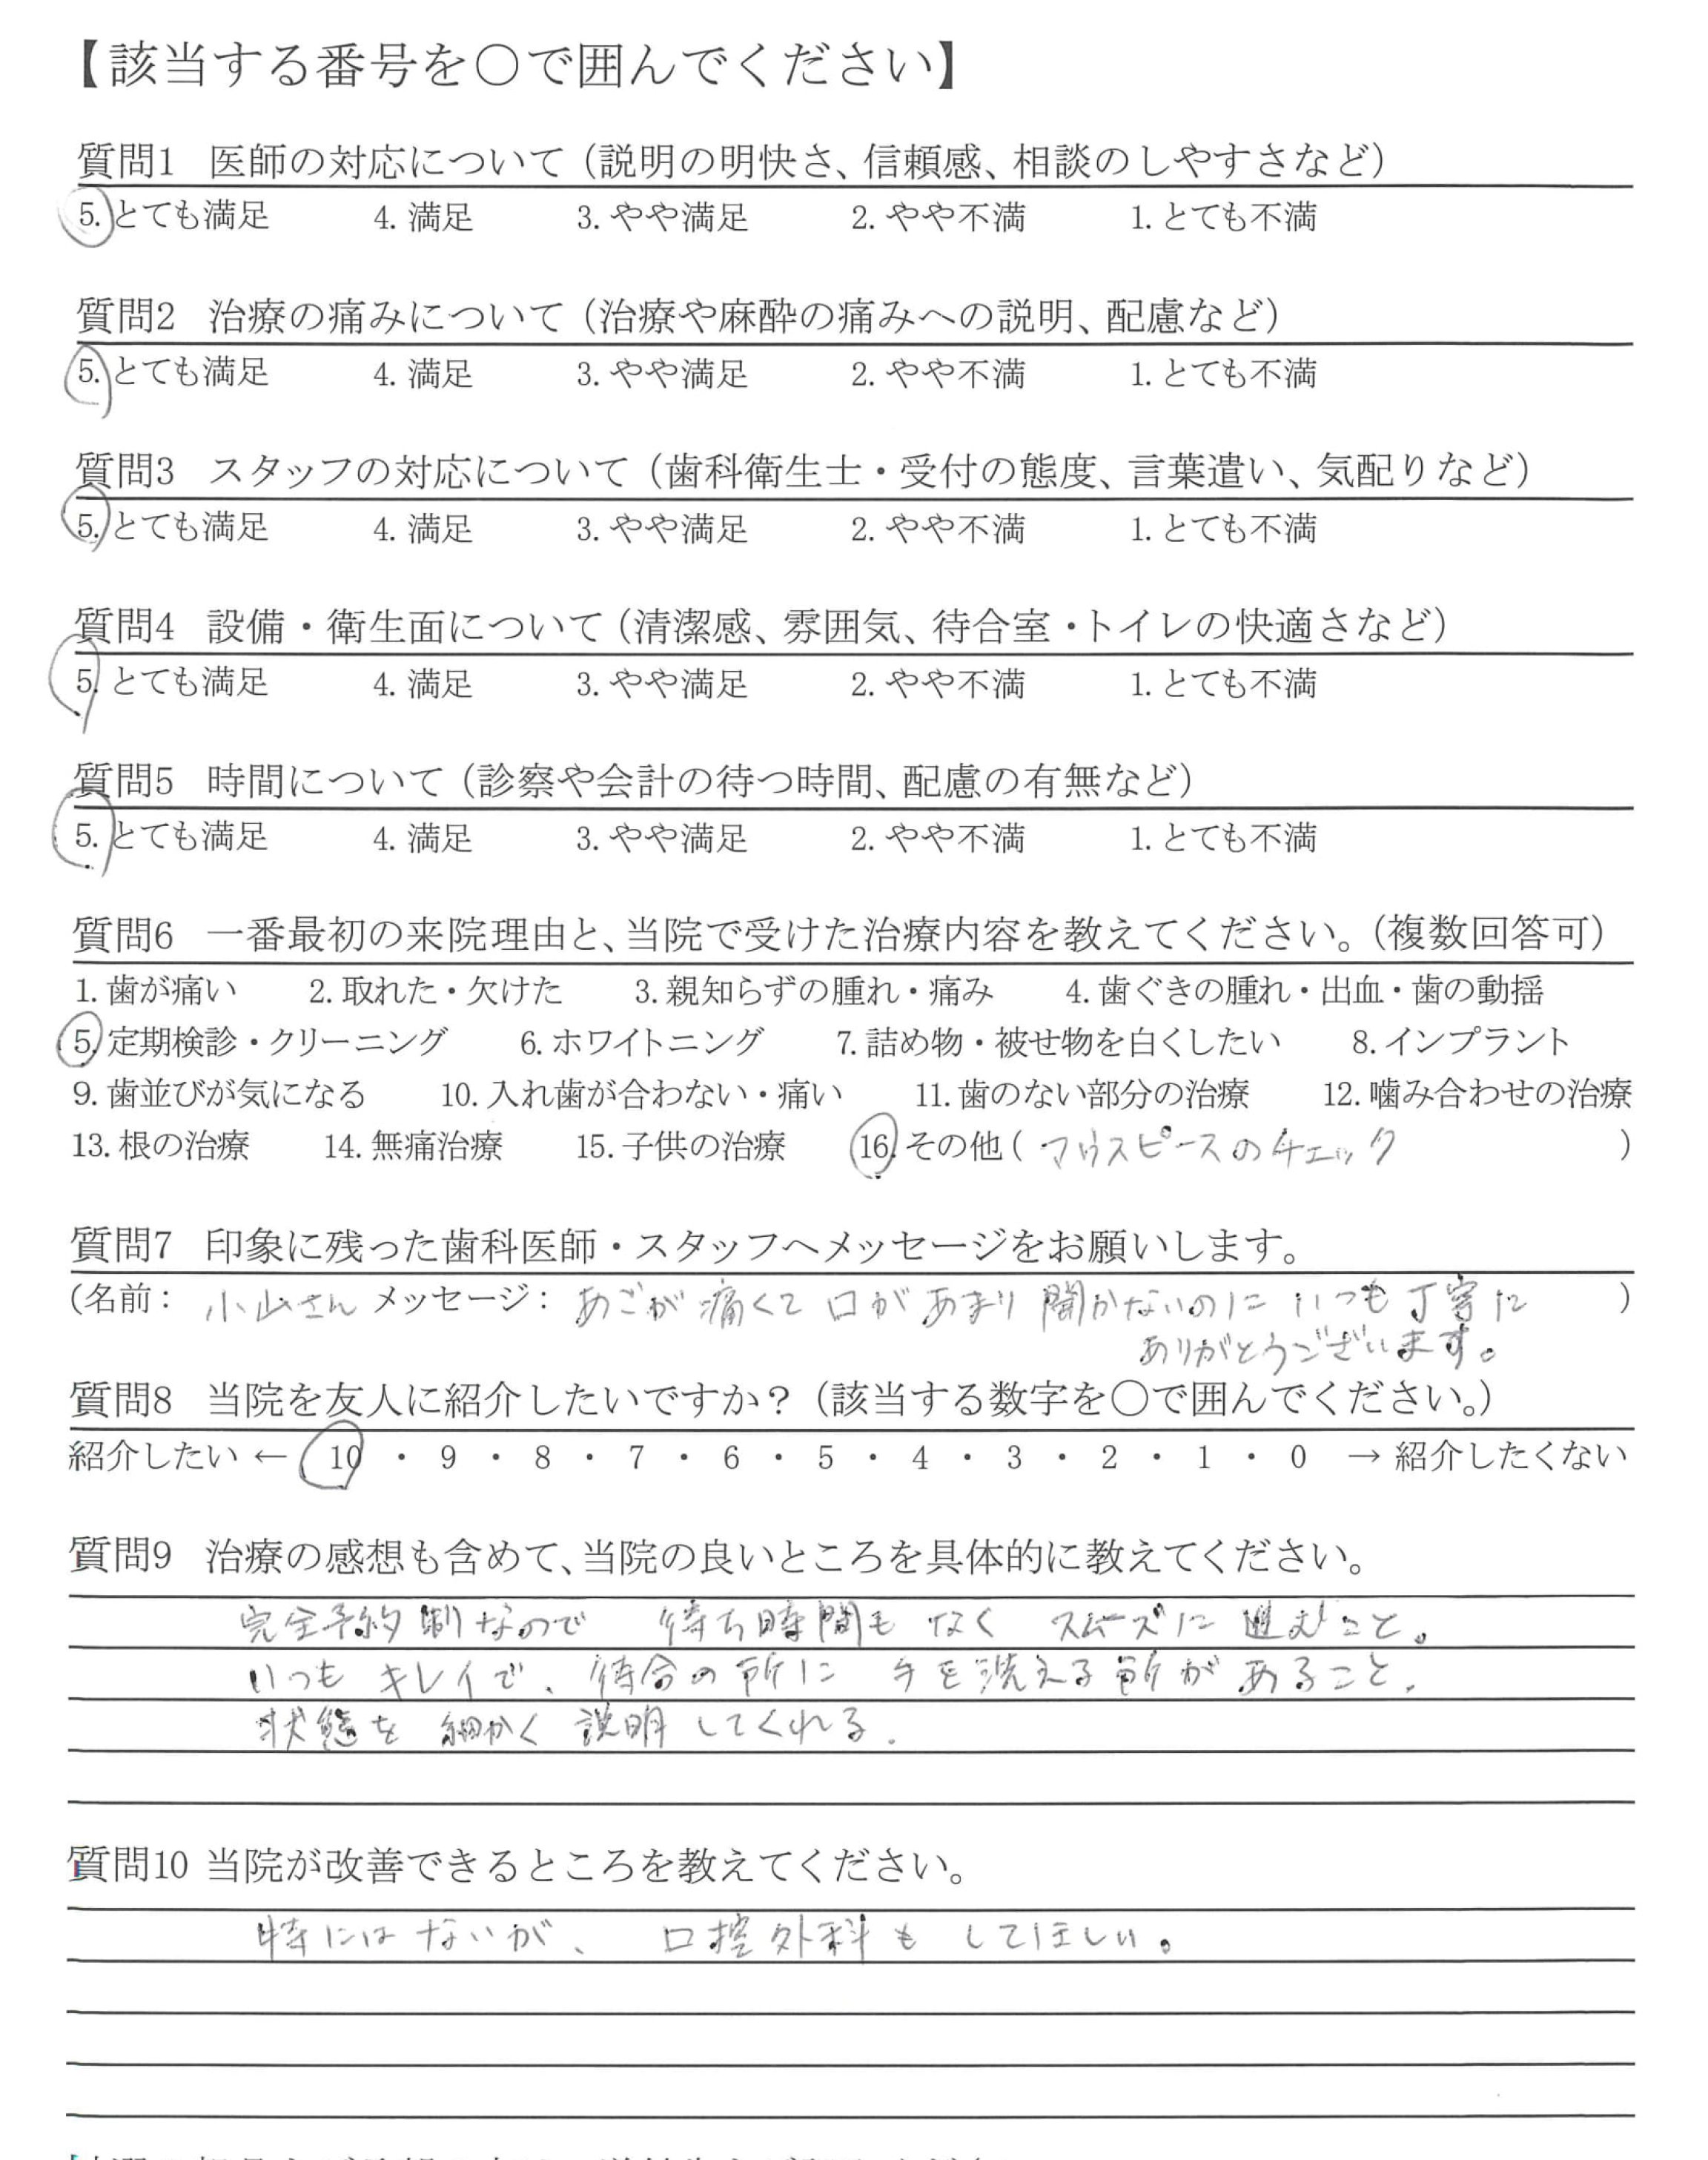 【該当する番号を〇で囲んでください】
質問1 医師の対応について（説明の明快さ、信頼感、相談のしやすさなど）
5. とても満足 4. 満足 3. やや満足 2. やや不満 1. とても不満
質問2 治療の痛みについて（治療や麻酔の痛みへの説明、配慮など）
5. とても満足 4. 満足 3. やや満足 2. やや不満 1. とても不満
質問3 スタッフの対応について（歯科衛生士・受付の態度、言葉遣い、気配りなど）
5. とても満足 4. 満足 3. やや満足 2. やや不満 1. とても不満
質問4 設備・衛生面について（清潔感、雰囲気、待合室・トイレの快適さなど）
5. とても満足 4. 満足 3. やや満足 2. やや不満 1. とても不満
質問5 時間について（診察や会計の待つ時間、配慮の有無など）
5. とても満足 4. 満足 3. やや満足 2. やや不満 1. とても不満
質問6 一番最初の来院理由と、当院で受けた治療内容を教えてください。（複数回答可）
1. 歯が痛い 2. 取れた・欠けた 3. 親知らずの腫れ・痛み 4. 歯ぐきの腫れ・出血・歯の動揺
5. 定期検診・クリーニング 6. ホワイトニング 7. 詰め物・被せ物を白くしたい 8. インプラント
9. 歯並びが気になる 10. 入れ歯が合わない・痛い 11. 歯のない部分の治療 12. 噛み合わせの治療
13. 根の治療 14. 無痛治療 15. 子供の治療 16. その他（ マウスピースのチェック ）
質問7 印象に残った歯科医師・スタッフへメッセージをお願いします。
（名前： 小山さん メッセージ： あごが痛くて口があまり開かないのにいつも丁寧に ）
ありがとうございます。
質問8 当院を友人に紹介したいですか？（該当する数字を〇で囲んでください。）
紹介したい ← 10 ・ 9 ・ 8 ・ 7 ・ 6 ・ 5 ・ 4 ・ 3 ・ 2 ・ 1 ・ 0 → 紹介したくない
質問9 治療の感想も含めて、当院の良いところを具体的に教えてください。
完全予約制なので 待ち時間もなく スムーズに進むこと。
いつもキレイで、待合の所に 手を洗える所があること。
状態を細かく説明してくれる。
質問10 当院が改善できるところを教えてください。
特にはないが、口腔外科もしてほしい。